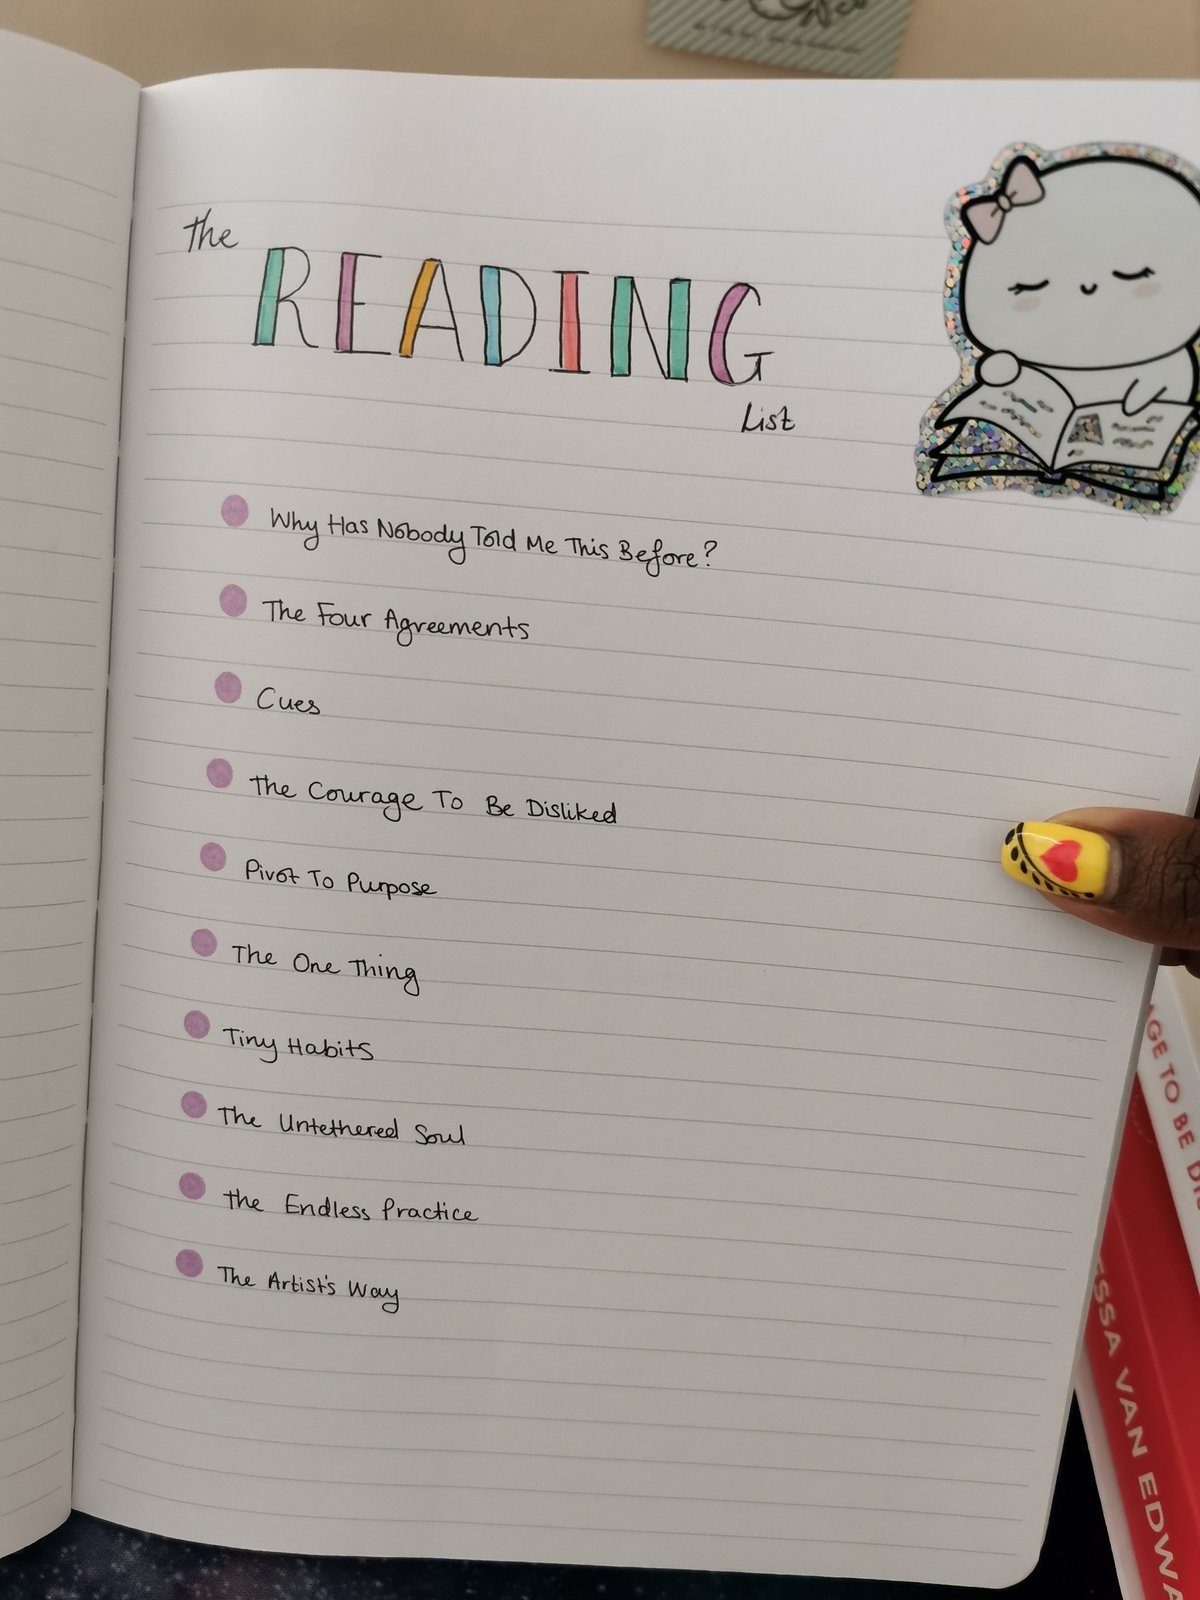 the
READING
List
Why Has Nobody Told Me This Before?
The Four Agreements
Cues
The Courage To Be Disliked
Pivot To Purpose
The One Thing
Tiny Habits
The Untethered Soul
the Endless Practice
The Artist's Way
AGE TO BE DIS
ESSA VAN EDWA